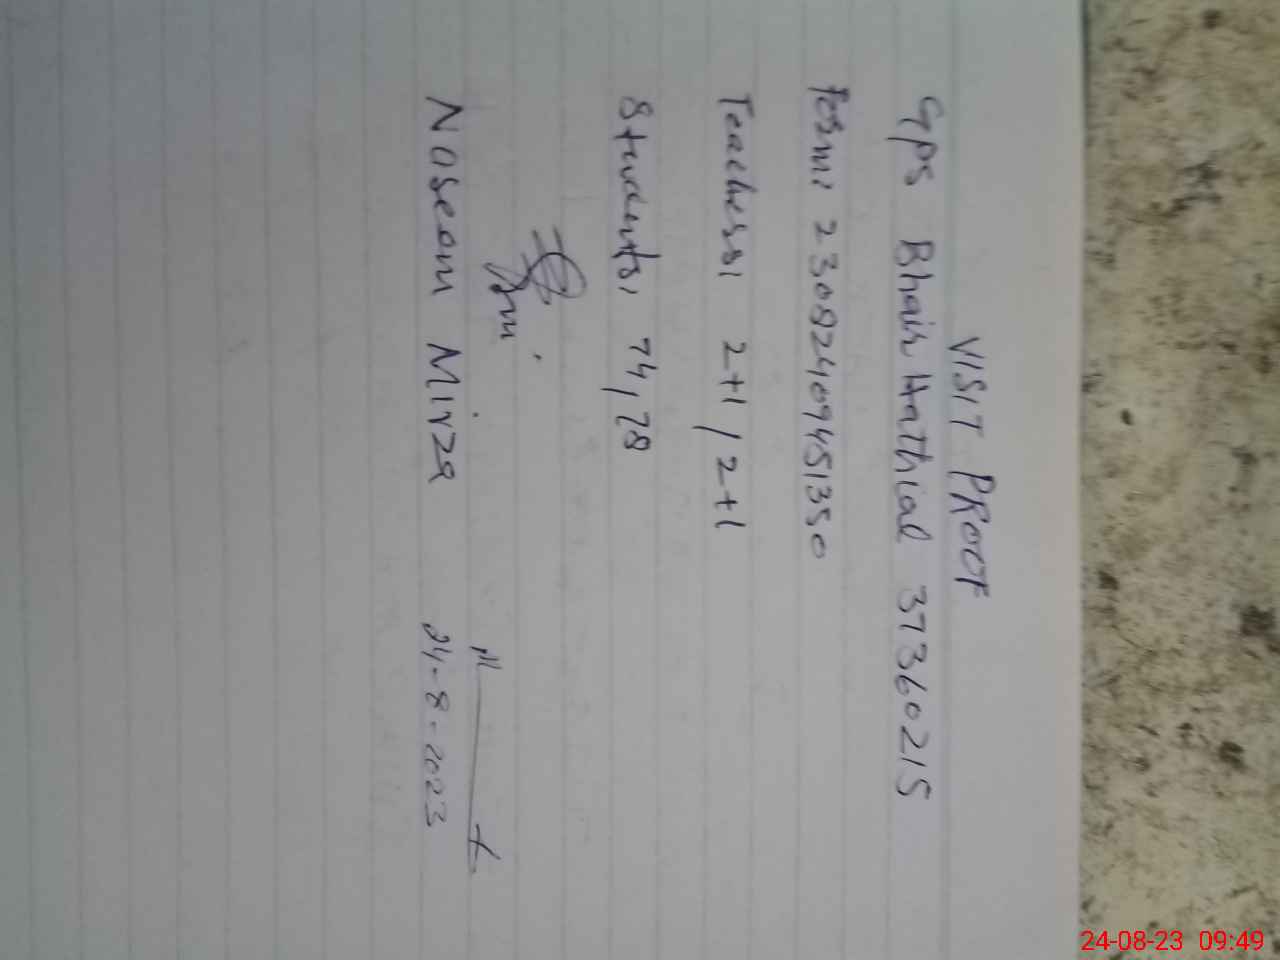 VISIT PROOF
GPS Bhair Hatthial 37360215
Form: 23082409451350
Teachers: 2+1 / 2+1
Students: 74, 78
Naseem Mirza 24-8-2023
24-08-23 09:49